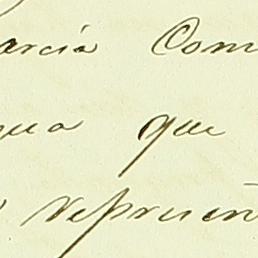 arcia Com
gua que
represen